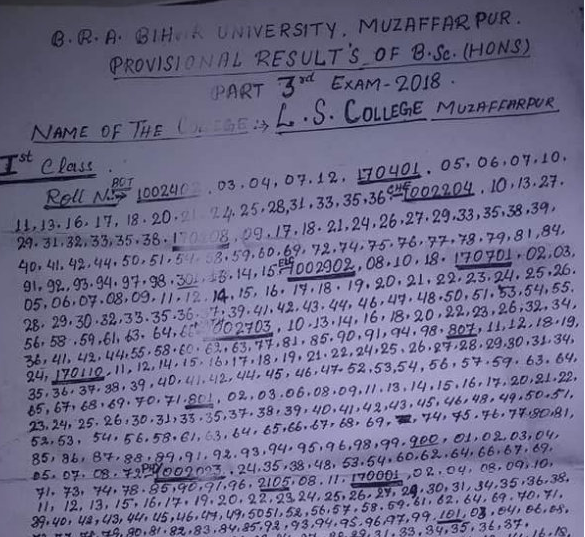 B.R.A. BIHAR UNIVERSITY, MUZAFFARPUR.
PROVISIONAL RESULT'S OF B.Sc. (HONS)
PART 3rd EXAM-2018.
NAME OF THE COLLEGE :→ L.S. COLLEGE MUZAFFARPUR
Ist Class.
Roll No:→ BOT 100240 . 03, 04, 07, 12, 170401 . 05, 06, 07, 10,
11, 13, 16, 17, 18, 20, 24, 25, 28, 31, 33, 35, 36, CHE 1002204 . 10, 13, 27.
29, 31, 32, 33, 35, 38, 09, 17, 18, 21, 24, 26, 27, 29, 33, 35, 38, 39,
40, 41, 42, 44, 50, 51, 58, 59, 60, 69, 72, 74, 75, 76, 77, 78, 79, 81, 84,
91, 92, 93, 94, 97, 98, 301, 13, 14, 15, 1002902, 08, 10, 18, 170701, 02, 03,
05, 06, 07, 08, 09, 11, 12, 14, 15, 16, 17, 18, 19, 20, 21, 22, 23, 24, 25, 26,
28, 29, 30, 32, 33, 35, 36, 37, 39, 41, 42, 43, 44, 46, 47, 48, 50, 51, 53, 54, 55,
56, 58, 59, 61, 63, 64, 1002703, 10, 13, 14, 16, 18, 20, 22, 23, 26, 32, 34,
36, 41, 42, 44, 55, 58, 60, 62, 63, 77, 81, 85, 90, 91, 94, 98, 807, 11, 12, 18, 19,
24, 170110, 11, 12, 14, 15, 16, 17, 18, 19, 21, 22, 24, 25, 26, 27, 28, 29, 30, 31, 34,
35, 36, 37, 38, 39, 40, 41, 42, 44, 45, 46, 47, 52, 53, 54, 56, 57, 59, 63, 64,
65, 67, 68, 69, 70, 71, 801, 02, 03, 06, 08, 09, 11, 13, 14, 15, 16, 17, 20, 21, 22,
23, 24, 25, 26, 30, 31, 33, 35, 37, 38, 39, 40, 41, 42, 43, 45, 46, 48, 49, 50, 51,
52, 53, 54, 56, 58, 61, 63, 64, 65, 66, 67, 68, 69, 74, 75, 76, 77, 80, 81,
85, 86, 87, 88, 89, 91, 92, 93, 94, 95, 96, 98, 99, 900, 01, 02, 03, 04,
05, 07, 08, 72, PHY 1002003, 24, 35, 38, 48, 53, 54, 60, 62, 64, 66, 67, 69,
71, 73, 74, 78, 85, 90, 91, 96, 2105, 08, 11, 170001, 02, 04, 08, 09, 10,
11, 12, 13, 15, 16, 17, 19, 20, 22, 23, 24, 25, 26, 27, 29, 30, 31, 34, 35, 36, 38,
39, 40, 42, 43, 44, 45, 46, 47, 49, 50, 51, 52, 56, 57, 58, 59, 61, 62, 64, 69, 70, 71,
79, 80, 81, 82, 83, 84, 85, 92, 93, 94, 95, 96, 97, 99, 101, 03, 04, 06, 08,